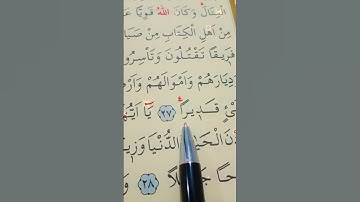 الْقِتَالَ وَكَانَ اللّٰهُ قَوِيًّا
مِنْ اَهْلِ الْكِتَابِ مِنْ
فَرِيقًا تَقْتُلُونَ وَتَأْسِرُو
دِيَارَهُمْ وَاَمْوَالَهُمْ وَاَرْ
قَدِيرًا ﴿٢٧﴾ يَٓا اَيُّهَا
الدُّنْيَا وَزِي
﴿٢٨﴾